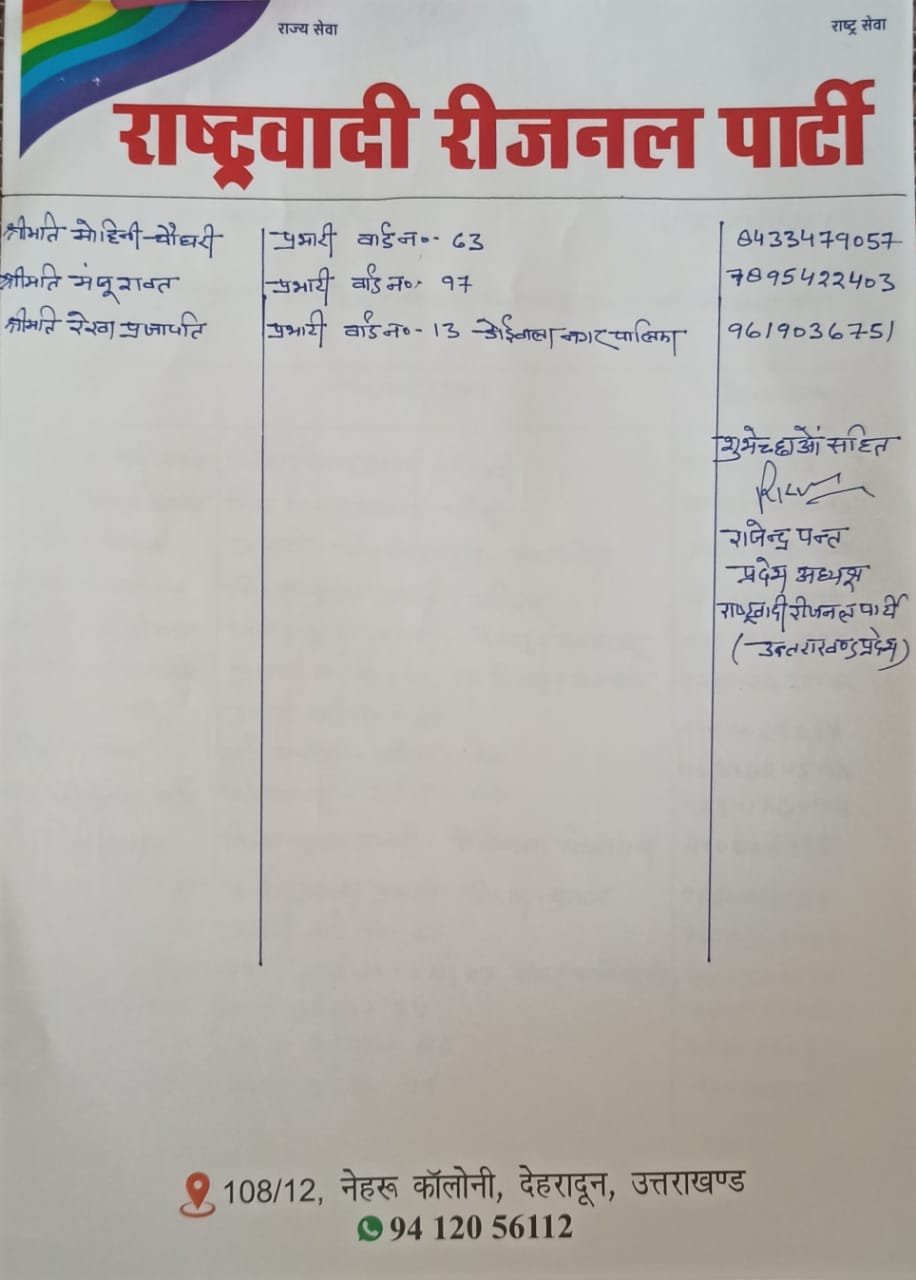 राज्य सेवा राष्ट्र सेवा
राष्ट्रवादी रीजनल पार्टी
श्रीमति मोहिनी चौधरी प्रभारी वार्ड न०- 63 8433479057
श्रीमति मंजू रावत प्रभारी वार्ड न०- 97 7895422403
श्रीमति रेखा प्रजापति प्रभारी वार्ड न०- 13 डोईवाला नगर पालिका 9619036751
शुभेच्छाओं सहित
राजेन्द्र पन्त
प्रदेश अध्यक्ष
राष्ट्रवादी रीजनल पार्टी
(उत्तराखण्ड प्रदेश)
108/12, नेहरू कॉलोनी, देहरादून, उत्तराखण्ड
94 120 56112